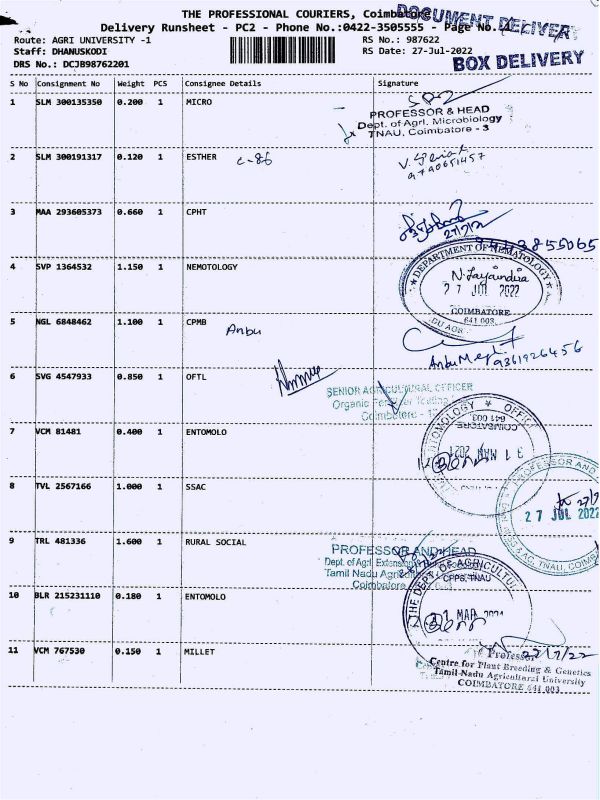 THE PROFESSIONAL COURIERS, Coimbatore
DOCUMENT DELIVERY
Delivery Runsheet - PC2 - Phone No.:0422-3505555 - Page No.
Route: AGRI UNIVERSITY -1
RS No.: 987622
Staff: DHANUSKODI
RS Date: 27-Jul-2022
BOX DELIVERY
DRS No.: DCJB98762201
S No Consignment No Weight PCS Consignee Details Signature
1 SLM 300135350 0.200 1 MICRO
PROFESSOR & HEAD
Dept. of Agrl. Microbiology
TNAU, Coimbatore - 3
2 SLM 300191317 0.120 1 ESTHER C-86
9790651457
3 MAA 293605373 0.660 1 CPHT
27/7/2
855065
4 SVP 1364532 1.150 1 NEMOTOLOGY
DEPARTMENT OF NEMATOLOGY
27 JUL 2022
COIMBATORE
641 003
5 NGL 6848462 1.100 1 CPMB Anbu
9361926456
6 SVG 4547933 0.850 1 OFTL
SENIOR AGRICULTURAL OFFICER
Organic Fertilizer Testing
Coimbatore -
7 VCM 81481 0.400 1 ENTOMOLO
ENTOMOLOGY OFFICE
COIMBATORE
641 003
31 MAR 2021
8 TVL 2567166 1.000 1 SSAC
PROFESSOR AND
27 JUL 2022
TNAU, COIMB
9 TRL 481336 1.600 1 RURAL SOCIAL
PROFESSOR AND HEAD
Dept. of Agrl Extension
Tamil Nadu Agricul
Coimbatore
10 BLR 215231110 0.180 1 ENTOMOLO
THE DEPT. OF AGRICULTU
CPPS, TNAU
MAR 2021
11 VCM 767530 0.150 1 MILLET
Professor
27/7/22
Centre for Plant Breeding & Genetics
Tamil Nadu Agricultural University
COIMBATORE 641 003